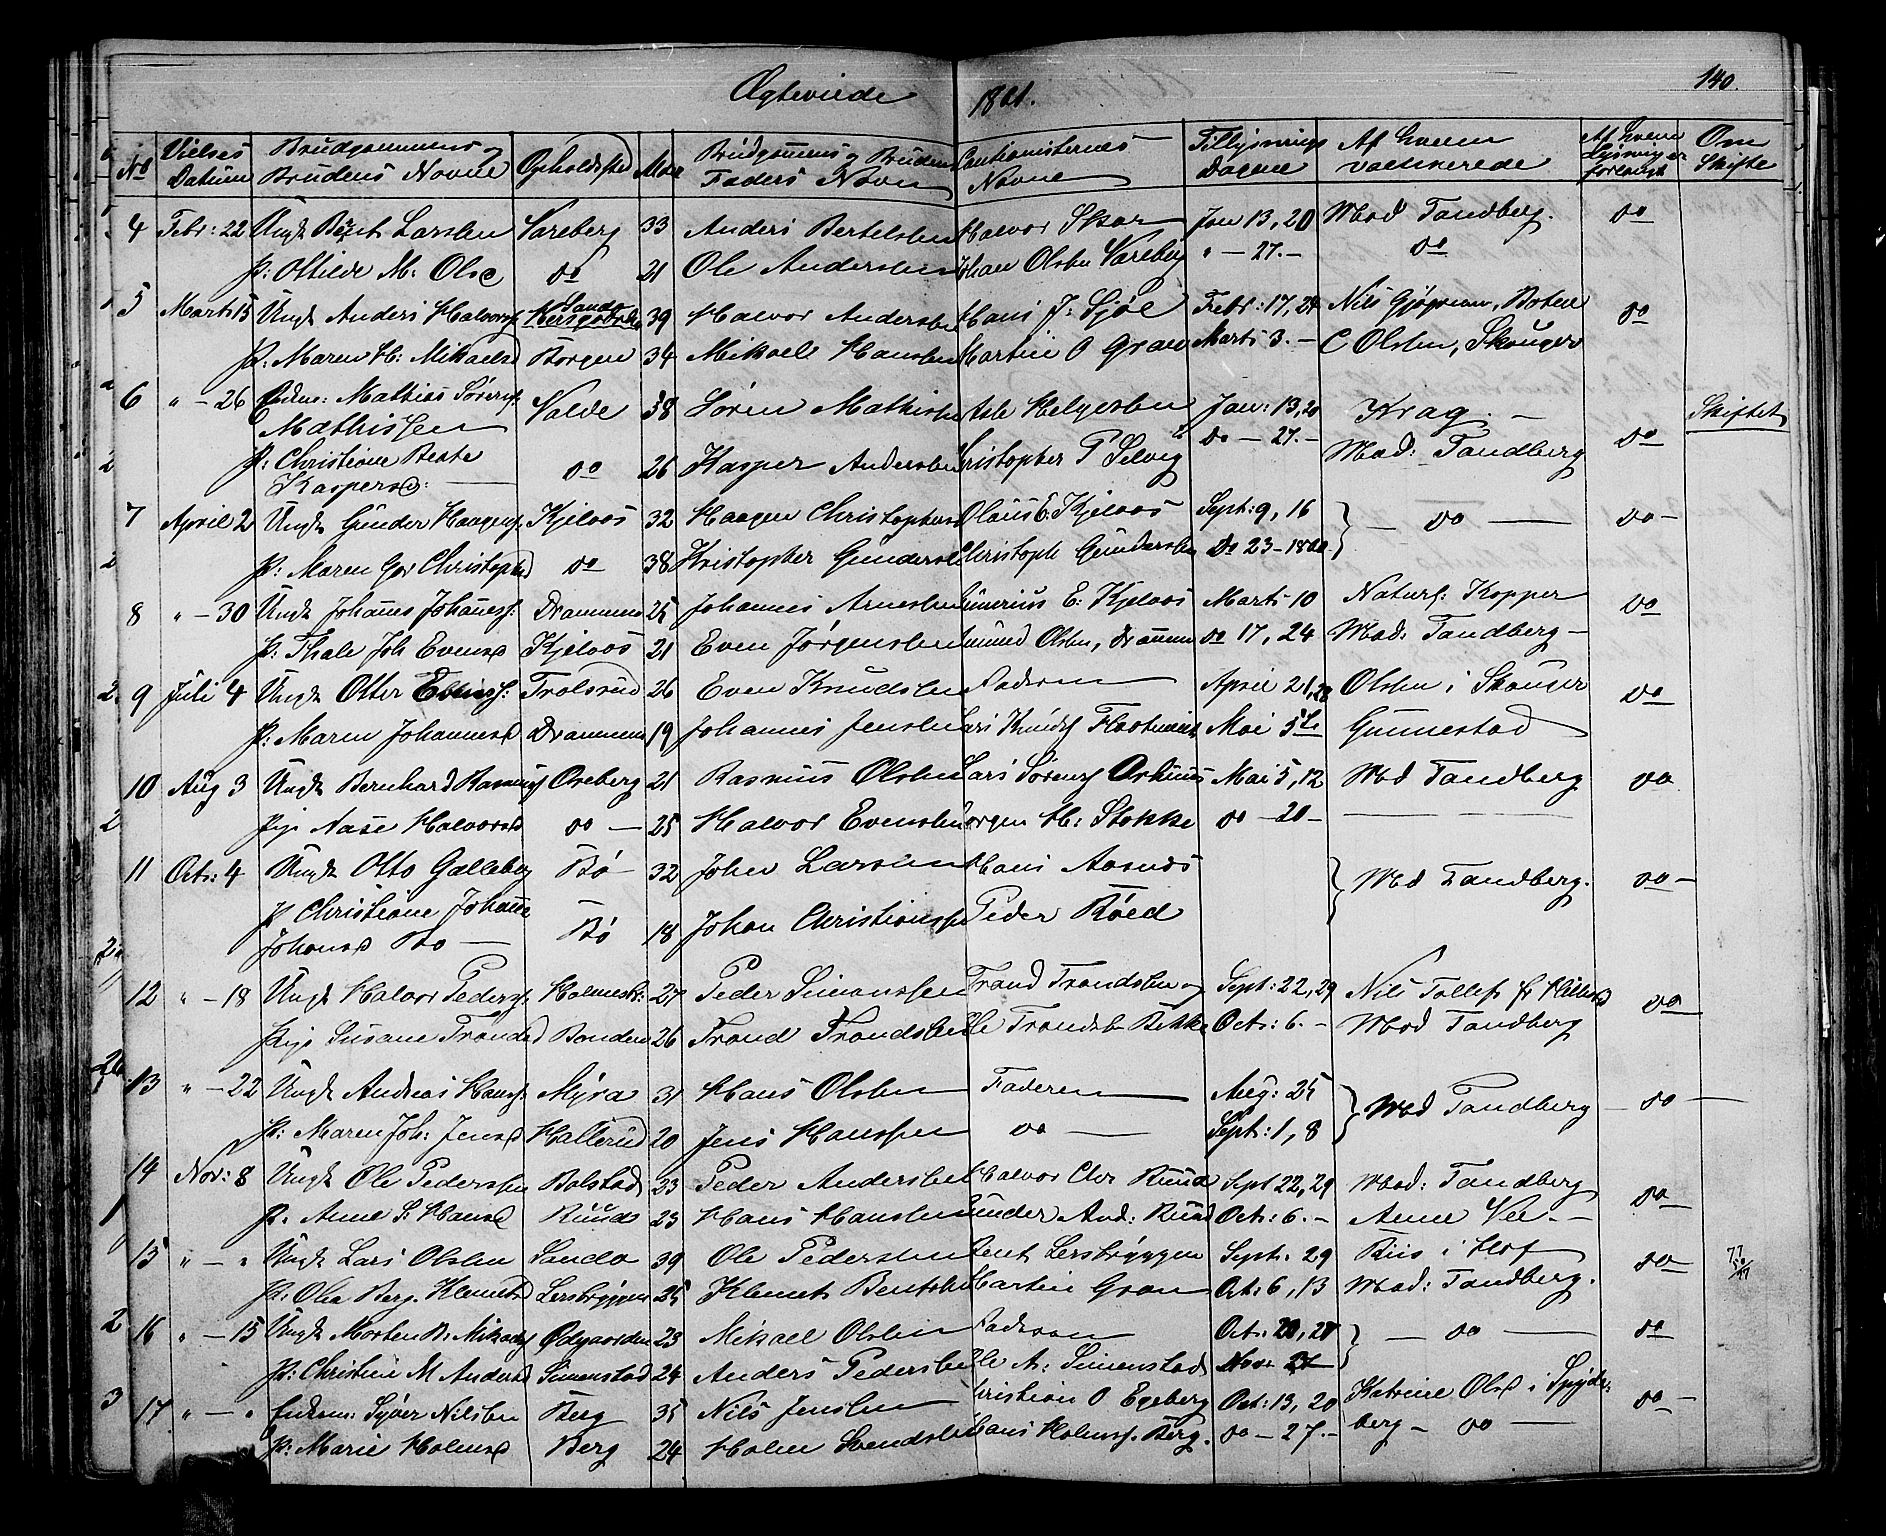 Ægteviede 1861. 140.
No Vielses Datum Brudgommens og Brudens Navne Opholdssted Alder Brudgommens og Brudens Faders Navn Cautionisternes Navne Tillysnings Dagene Af hvem vaccinerede Af hvem Lysning er forlangt Om Skifte
4 Febr: 22 Ungk Bernt Larssen Vareberg 33 Anders Bertelsen Halvor Skar Jan 13, 20 Mad Tandberg. do
P: Ottilde M: Olsd do 21 Ole Anderssen Johan Olsen Vareberg " - 27. - do
5 Marts 15 Ungk Anders Halvors. Sande 39 Halvor Anderssen Hans J: Sjøl Febr: 17, 24 Nils Gjøgrum, Botne do
P: Maren H: Mikaelsd Borgen 34 Mikaele Hanssen Martin O Gran Marts 3. - C Olsen, Skouger
6 " - 26 Enkem: Mathias Sørens. Valde 38 Søren Mathissen Asle Helgesen Jan: 13, 20 Krag. - Skiftet
Mathissen
P: Christiane Beate do 26 Kasper Anderssen Christopher P Selvig do - 27. - Mad: Tandberg do
Kaspersd: -
7 April 2 Ungk Gunder Haagens. Kjelaas 32 Haagen Christophers Olaus E: Kjelaas Sept: 9, 16 - do - do -
P: Maren Gor Christophd do 38 Kristopher Gunders Christoph Gundersen Do 23 - 1860.
8 " - 30 Ungk Johannes Johannes: Drammen 25 Johannes Arnesen E: Kjelaas Marts 10 Naturf: Kopper do
P: Thale Joh Evensd Kjelaas 21 Even Jørgenssen Amund Olsen, Drammen do 17, 24 Mad: Tandberg -
9 Juli 4 Ungk Otter Evens: Trolsrud 26 Even Knudsen Faderen April 21, 28 Olsen i Skouger do
P: Maren Johannesd Drammen 19 Johannes Jenssen Lars Knuds Mai 5te Gunnestad
10 Aug 3 Ungk Bernhard Rasmus Oreberg 21 Rasmus Olsen Lars Sørens Mai 5, 12 Mad Tandberg do
Pige Nase Halvorsd do - 25 Halvor Evensen Jørgen H: Stokke do - 20 -
11 Octr: 4 Ungk Otto Galleberg Bø 32 John Larssen Hans Aasnes Mad Tandberg. do -
P Christiane Johanne Bø 18 Johan Christianssen Peder Røed
Johansd Bo -
12 " - 18 Ungk Halvor Peders: Holmestr: 27 Peder Simonssen Trond Trondsen og Sept: 22, 29 Nils Tollefs fr Hillest do
Pige Susane Trondsd Banden 26 Trond Trondsen Ole Trondsen Bekke Octr: 6. - Mad Tandberg
13 " - 22 Ungk Andreas Hans: Myra 31 Hans Olsen Faderen Aug: 25 Mad Tandberg - do -
P: Maren Joh: Jensd Hallerud 20 Jens Hanssen do - Sept: 1, 8
14 Nov: 8 Ungk Ole Pederssen Bolstad 23 Peder Anderssen Halvor Chr Ruud Sept 22, 29 Mad: Tandberg do
P. Anne S: Hansd Ruud 23 Hans Hanssen Gunder And: Ruud Octr: 6. - Arne Vee. -
15 " - " Ungk Lars Olsen Sando 39 Ole Pederssen Bent Lersbryggen Sept: 29 Riis i Hof do 77
P: Olea Berg. Klemetsd Lersbryggen 25 Klemet Bentsen Martin Gran Oct: 6, 13 Mad: Tandberg.
16 " - 15 Ungk Morten B. Mikaels Ødgaarden 23 Mikael Olsen Faderen Oct: 20, 27 - do - do
P: Christine M Andersd Simenstad 24 Anders Pedersen Ole A: Simenstad Nov:
17 " - " Enkem: Syver Nilsen Berg 35 Nils Jenssen Christian O Egeberg Oct: 13, 20 Katrine Olsd i Spyde- do -
P: Marie Holmsd Berg 24 Holm Svendsen Hans Holms. Berg. do - 27. - berg - do -